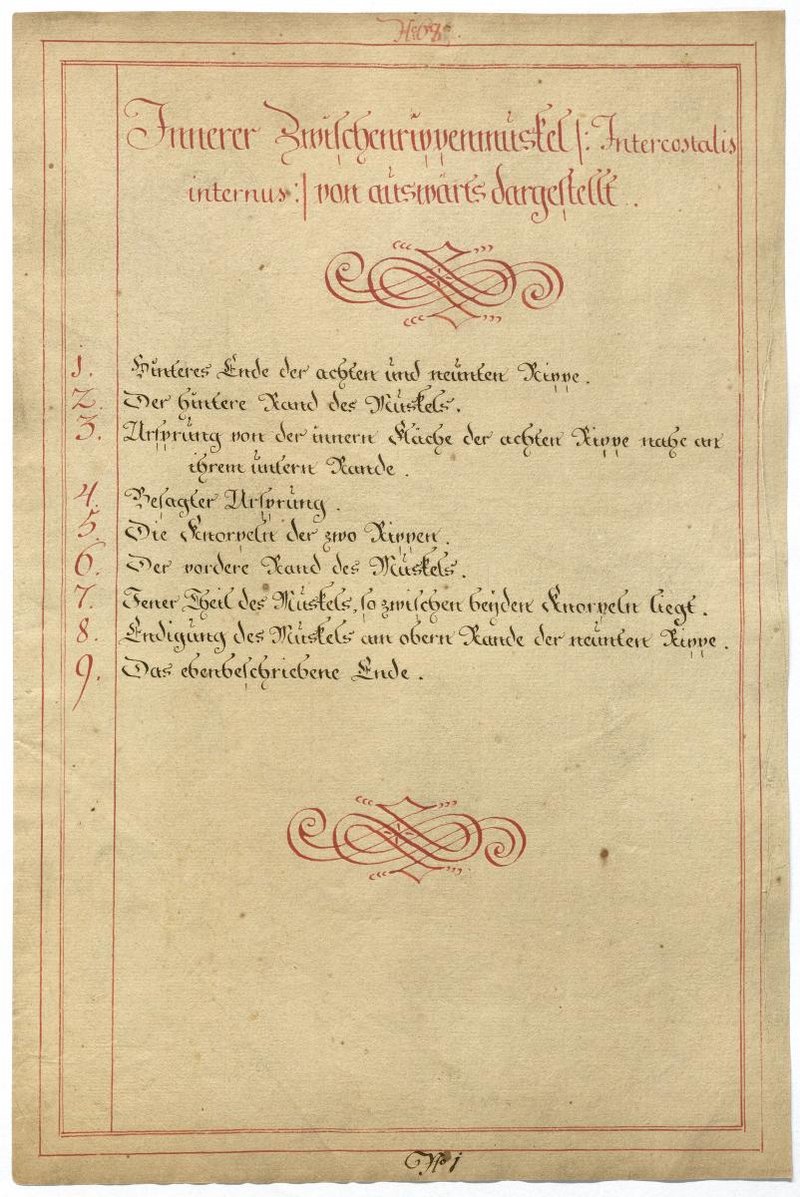 Innerer Zwischenrippenmuskel /: Intercostalis
internus :/ von auswärts dargestellt .
1. Hinteres Ende der achten und neunten Rippe .
2. Der hintere Rand des Muskels .
3. Ursprung von der innern Fläche der achten Rippe nahe an
ihrem untern Rande .
4. Besagter Ursprung .
5. Die Knorpeln der zwo Rippen .
6. Der vordere Rand des Muskels .
7. Jener Theil des Muskels, so zwischen beyden Knorpeln liegt .
8. Endigung des Muskels am obern Rande der neunten Rippe .
9. Das ebenbeschriebene Ende .
No i